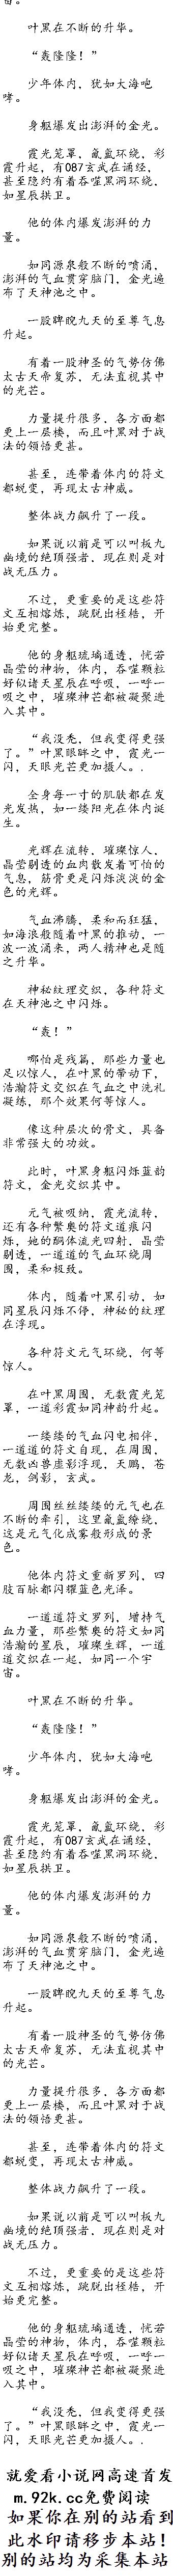 宙。
叶黑在不断的升华。
“轰隆隆！”
少年体内，犹如大海咆
哮。
身躯爆发出澎湃的金光。
霞光笼罩，氤氲环绕，彩
霞升起，有087玄武在诵经，
甚至隐约有着吞噬黑洞环绕，
如星辰拱卫。
他的体内爆发澎湃的力
量。
如同源泉般不断的喷涌，
澎湃的气血贯穿脑门，金光遍
布了天神池之中。
一股睥睨九天的至尊气息
升起。
有着一股神圣的气势仿佛
太古天帝复苏，无法直视其中
的光芒。
力量提升很多，各方面都
更上一层楼，而且叶黑对于战
法的领悟更甚。
甚至，连带着体内的符文
都蜕变，再现太古神威。
整体战力飙升了一段。
如果说以前是可以叫板九
幽境的绝顶强者，现在则是对
战无压力。
不过，更重要的是这些符
文互相熔炼，跳脱出桎梏，开
始更完整。
他的身躯琉璃通透，恍若
晶莹的神物，体内，吞噬颗粒
好似诸天星辰在呼吸，一呼一
吸之中，璀璨神芒都被凝聚进
入其中。
“我没秃，但我变得更强
了。”叶黑眼眸之中，霞光一
闪，天眼光芒更加摄人。.
全身每一寸的肌肤都在发
光发热，如一缕阳光在体内诞
生。
光辉在流转，璀璨惊人，
晶莹剔透的血肉散发着可怕的
气息，筋骨更是闪烁淡淡的金
色的光辉。
气血沸腾，柔和而狂猛，
如海浪般随着叶黑的推动，一
波一波涌来，两人精神也是随
之升华。
神秘纹理交织，各种符文
在天神池之中闪烁。
“轰！”
哪怕是残篇，那些力量也
足以惊人，在叶黑的带动下，
浩瀚符文交织在气血之中洗礼
凝练，那个效果何等惊人。
像这种层次的骨文，具备
非常强大的功效。
此时，叶黑身躯闪烁蓝韵
符文，金光交织其中。
元气被吸纳，霞光流转，
还有各种繁奥的符文道痕闪
烁，她的酮体流光四射，晶莹
剔透，一道道的气血环绕周
围，柔和极致。
体内，随着叶黑引动，如
同星辰闪烁不停，神秘的纹理
在浮现。
各种符文元气环绕，何等
惊人。
在叶黑周围，无数霞光笼
罩，一道彩霞如同神韵升起。
一缕缕的气血闪电相伴，
一道道的符文自现，在周围，
无数凶兽虚影浮现，天鹏，苍
龙，剑影，玄武。
周围丝丝缕缕的元气也在
不断的牵引，这里氤氲缭绕，
这是元气化成雾般形成的景
色。
他体内符文重新罗列，四
肢百脉都闪耀蓝色光泽。
一道道符文罗列，增持气
血力量，那些繁奥的符文如同
浩瀚的星辰，璀璨生辉，一道
道交织在一起，如同一个宇
宙。
叶黑在不断的升华。
“轰隆隆！”
少年体内，犹如大海咆
哮。
身躯爆发出澎湃的金光。
霞光笼罩，氤氲环绕，彩
霞升起，有087玄武在诵经，
甚至隐约有着吞噬黑洞环绕，
如星辰拱卫。
他的体内爆发澎湃的力
量。
如同源泉般不断的喷涌，
澎湃的气血贯穿脑门，金光遍
布了天神池之中。
一股睥睨九天的至尊气息
升起。
有着一股神圣的气势仿佛
太古天帝复苏，无法直视其中
的光芒。
力量提升很多，各方面都
更上一层楼，而且叶黑对于战
法的领悟更甚。
甚至，连带着体内的符文
都蜕变，再现太古神威。
整体战力飙升了一段。
如果说以前是可以叫板九
幽境的绝顶强者，现在则是对
战无压力。
不过，更重要的是这些符
文互相熔炼，跳脱出桎梏，开
始更完整。
他的身躯琉璃通透，恍若
晶莹的神物，体内，吞噬颗粒
好似诸天星辰在呼吸，一呼一
吸之中，璀璨神芒都被凝聚进
入其中。
“我没秃，但我变得更强
了。”叶黑眼眸之中，霞光一
闪，天眼光芒更加摄人。.
就爱看小说网高速首发
m.92k.cc免费阅读
如果你在别的站看到
此水印请移步本站！
别的站均为采集本站